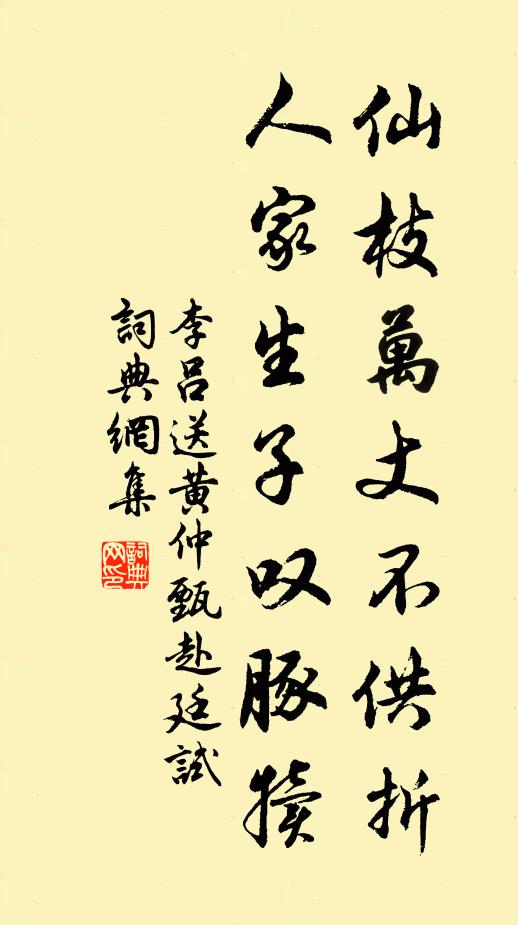 仙枝萬丈不供折
人家生子叹豚犢
李呂送黄仲甄赴廷試
詞典網集
詞典
网印